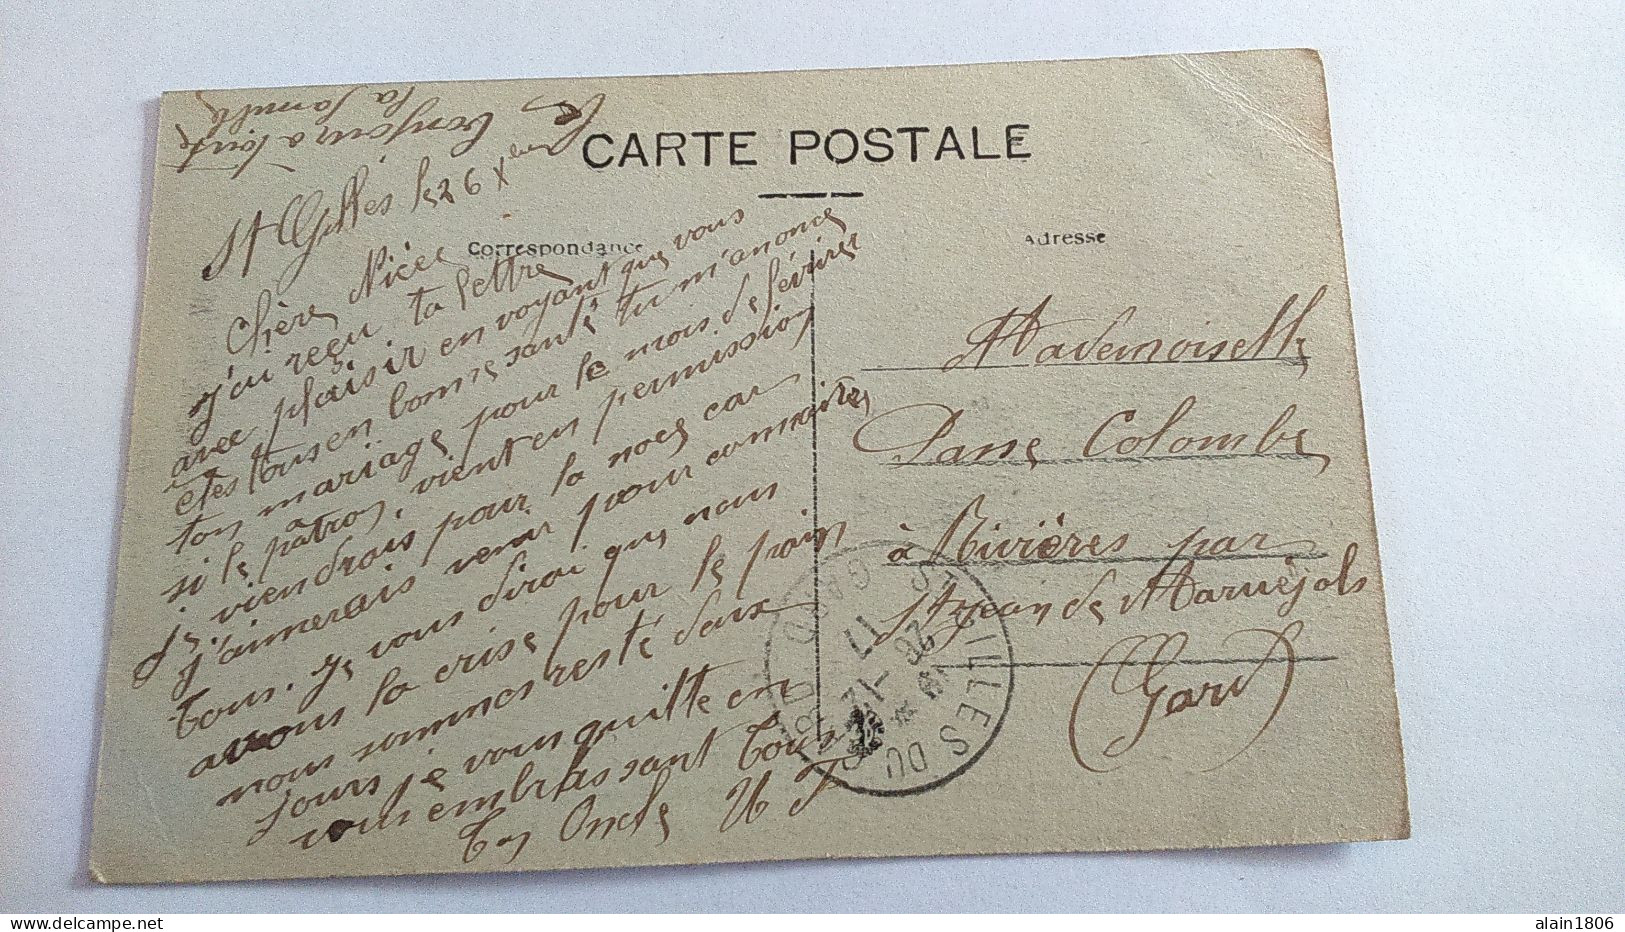 CARTE POSTALE
Correspondance
Adresse
Bonjour a toute
la famille
St Gilles le 26 Xbre
Chère Nièce
j'ai reçu ta lettre
avec plaisir en voyant que vous
êtes tous en bonne santé tu m'anonce
ton mariage pour le mois de février
si le patron vient en permission
je viendrais pour la noce car
j'aimerais venir pour connaitre
tous. je vous dirai que nous
avons la crise pour le pain
nous sommes resté deux
jours je vous quitte en
vous embrassant tous
Ton Oncle
Mademoiselle
Passe Colombe
à Rivières par
St Jean de Maruéjols
(Gard)
ST GILLES DU GARD
26 - 12
17
GARD
alain1806
www.delcampe.net